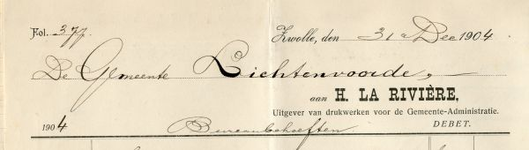 Fol. 377.
Zwolle, den 31 Dec 1904.
De Gemeente Lichtenvoorde,
aan H. LA RIVIÈRE,
Uitgever van drukwerken voor de Gemeente-Administratie.
1904 DEBET.
Bureaubehoeften